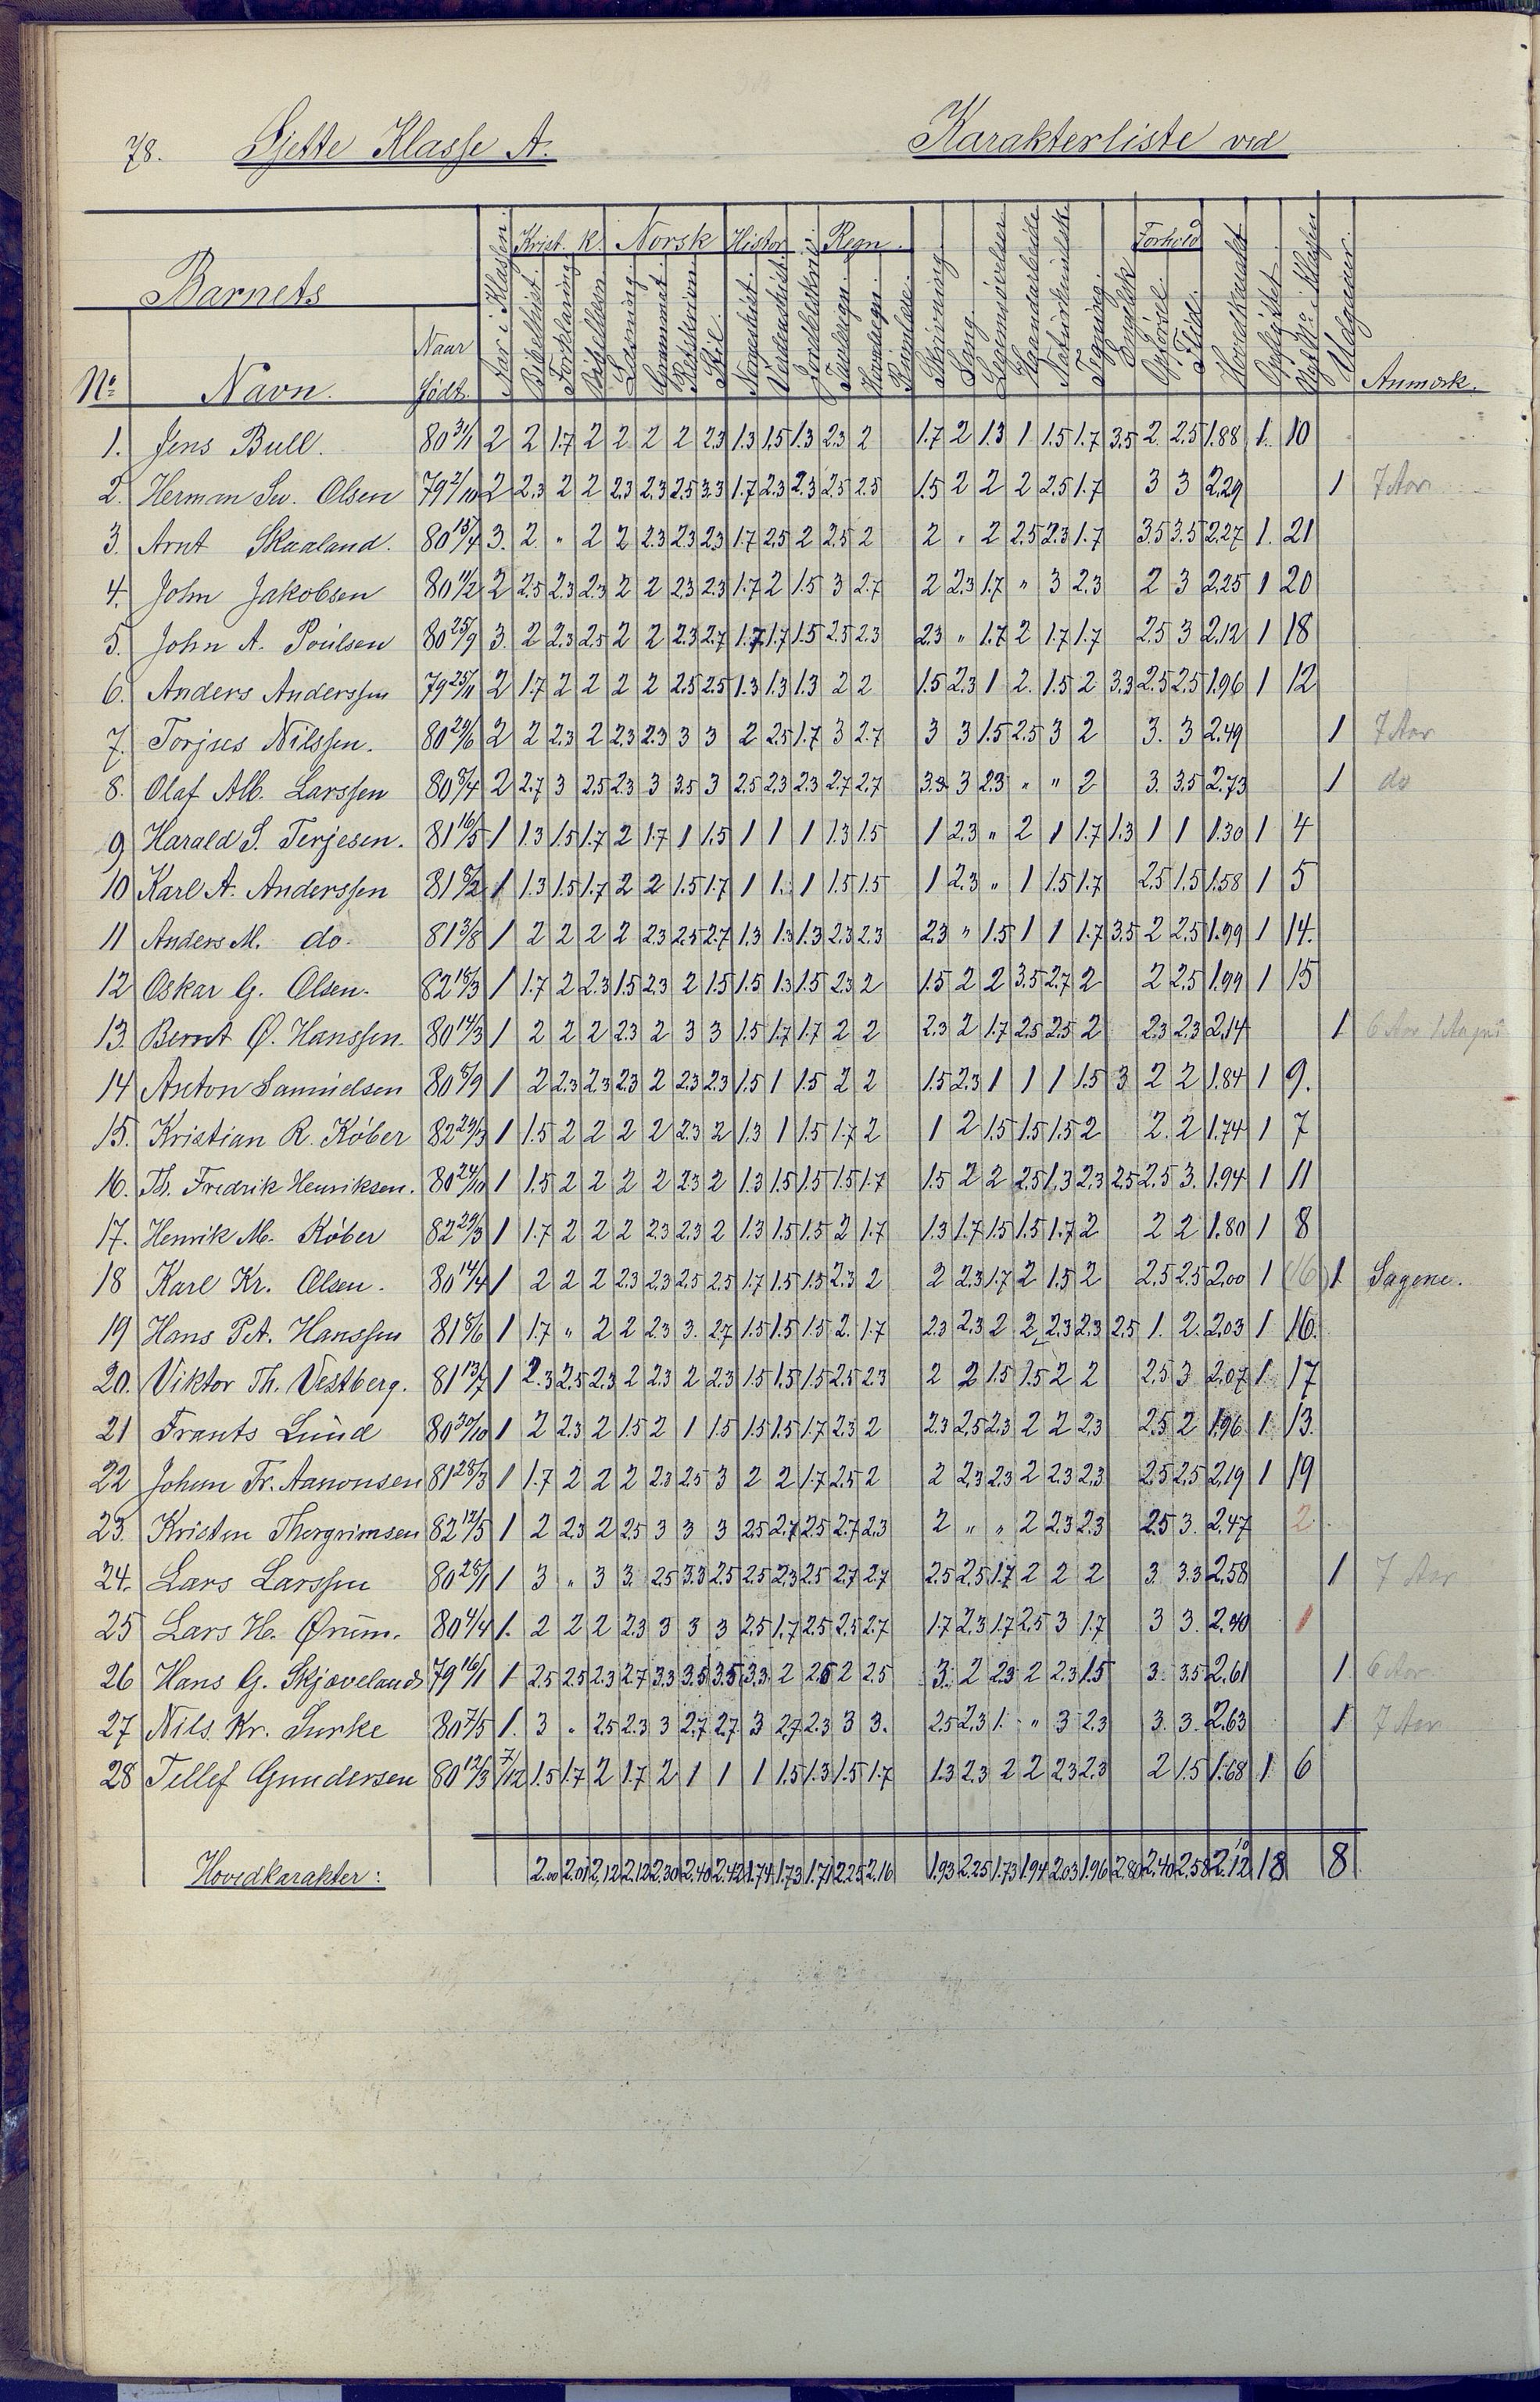 78. Sjette Klasse A. Karakterliste ved
Krist. K. Norsk Histor. Regn. Forhold
Barnets
Aar i Klassen Bibelhist. Forklaring Bibellæsn. Læsning Grammat. Retskrivn. Stil. Norgeshist. Verdenshist. Jordbeskriv. Tavleregn. Hovedregn. Rumlære. Skrivning Sang Legemsøvelser Haandarbeide Naturkundsk. Tegning. Engelsk Opførsel Flid. Hovedkarakt. Opflyttet Udgaaer.
No Navn. Naar født. Anmerk.
1. Jens Bull. 80 31/1 2 2 1.7 2 2 2 2 2.3 1.3 1.5 1.3 2.3 2 1.7 2 1.3 1 1.5 1.7 3.5 2. 2.5 1.88 1. 10
2. Herman Sev. Olsen 79 2/10 2 2.3 2 2 2.3 2.3 2.5 3.3 1.7 2.3 2.3 2.5 2.5 1.5 2 2 2 2.5 1.7 3 3 2.29 1 7 Aar
3. Arnt Skaaland. 80 15/4 3. 2. " 2 2 2.3 2.3 2.3 1.7 2.5 2 2.5 2 2 " 2 2.5 2.3 1.7 3.5 3.5 2.27 1. 21
4. John Jakobsen 80 11/2 2 2.5 2.3 2.3 2 2 2.3 2.3 1.7 2 1.5 3 2.7 2 2.3 1.7 " 3 2.3 2 3 2.25 1 20
5. John A. Poulsen 80 25/9 3. 2 2.3 2.5 2 2 2.3 2.7 1.7 1.7 1.5 2.5 2.3 2.3 " 1.7 2 1.7 1.7 2.5 3 2.12 1 18
6. Anders Anderssen 79 25/11 2 1.7 2 2 2 2 2.5 2.5 1.3 1.3 1.3 2 2 1.5 2.3 1 2. 1.5 2 3.3 2.5 2.5 1.96 1 12
7. Torjus Nilssen. 80 29/6 2 2 2.3 2 2.3 2.3 3 3 2 2.5 1.7 3 2.7 3 3 1.5 2.5 3 2 3. 3 2.49 1 7 Aar
8. Olaf Alb. Larssen 80 8/4 2 2.7 3 2.5 2.3 3 3.5 3 2.5 2.3 2.3 2.7 2.7 3.3 3 2.3 " " 2 3. 3.5 2.73 1 do
9 Harald S. Terjesen. 81 16/5 1 1.3 1.5 1.7 2 1.7 1 1.5 1 1 1 1.3 1.5 1 2.3 " 2 1 1.7 1.3 1 1 1.30 1 4
10 Karl A. Anderssen 81 8/2 1 1.3 1.5 1.7 2 2 1.5 1.7 1 1. 1 1.5 1.5 1 2.3 " 1 1.5 1.7 2.5 1.5 1.58 1 5
11 Anders M. do 81 3/8 1 2 2 2 2 2.3 2.5 2.7 1.3 1.3 1.3 2.3 2.3 2.3 " 1.5 1 1 1.7 3.5 2 2.5 1.99 1 14.
12 Oskar G. Olsen. 82 18/3 1 1.7 2 2.3 1.5 2.3 2 1.5 1.5 1.3 1.5 2.3 2 1.5 2 2 3.5 2.7 2 2 2.5 1.99 1 15
13. Bernt Ø. Hanssen. 80 14/3 1 2 2 2 2.3 2 3 3 1.5 1.7 1.7 2 2 2.3 2 1.7 2.5 2.5 2 2.3 2.3 2.14 1 6 Aar
14 Anton Samuelsen 80 8/9 1 2 2.3 2.3 2.3 2 2.3 2.3 1.5 1 1.5 2 2 1.5 2.3 1 1 1 1.5 3 2 2 1.84 1 9.
15. Kristian R. Köber 82 29/3 1 1.5 2 2 2 2 2.3 2 1.3 1 1.5 1.7 2 1 2 1.5 1.5 1.5 2 2. 2 1.74 1 7
16. Th. Fredrik Henriksen. 80 24/10 1 1.5 2 2 2 2 2.3 2 1.3 1.5 1.5 1.5 1.7 1.5 2 2 2.5 1.3 2.3 2.5 2.5 3. 1.94 1 11
17. Henrik M. Köber 82 29/3 1 1.7 2 2 2 2.3 2.3 2 1.3 1.5 1.5 2 1.7 1.3 1.7 1.5 1.5 1.7 2 2 2 1.80 1 8
18 Karl Kr. Olsen. 80 14/4 1 2 2 2 2.3 2.3 2.5 2.5 1.7 1.5 1.5 2.3 2 2 2.3 1.7 2 1.5 2 2.5 2.5 2.00 1 (16) 1. Sagene.
19 Hans P.A. Hanssen 81 8/6 1 1.7 " 2 2 2.3 3. 2.7 1.5 1.5 1.5 2. 1.7 2.3 2.3 2 2 2.3 2.3 2.5 1. 2. 2.03 1 16.
20. Viktor Th. Vestberg. 81 13/7 1 2.3 2.5 2.3 2 2.3 2 2.3 1.5 1.5 1.5 2.5 2.3 2 2 1.5 1.5 2 2 2.5 3 2.07 1. 17
21 Frants Lund 80 30/10 1 2 2.3 2 1.5 2 1 1.5 1.5 1.5 1.7 2.3 2 2.3 2.5 2.3 2 2 2.3 2.5 2 1.96 1. 13.
22 Johan Fr. Aanonsen 81 28/3 1 1.7 2 2 2 2.3 2.5 3 2 2 1.7 2.5 2 2 2.3 2.3 2 2.3 2.3 2.5 2.5 2.19 1 19
23. Kristen Thorgrimsen 82 12/5 1 2 2.3 2 2.5 3 3 3 2.5 2.7 2.5 2.7 2.3 2 " " 2 2.3 2.3 2.5 3. 2.47 2.
24. Lars Larssen 80 28/1 1 3 " 3 3. 2.5 3.3 2.5 2.5 2.3 2.5 2.7 2.7 2.5 2.5 1.7 2 2 2 3. 3.3 2.58 1 7 Aar
25 Lars H. Ørum. 80 4/4 1. 2 2 2 2.3 3 3 3 2.5 1.7 2.5 2.5 2.7 1.7 2.3 1.7 2.5 3 1.7 3 3. 2.40 1
26 Hans G. Skjøveland 79 16/1 1 2.5 2.5 2.3 2.7 3.3 3.5 3.5 3.3 2 2.5 2 2.5 3. 2 2.3 2 2.3 1.5 3. 3.5 2.61 1 6 Aar
27 Nils Kr. Surke 80 7/5 1. 3 " 2.5 2.3 3 2.7 2.7 3 2.7 2.3 3 3. 2.5 2.3 1. " 3 2.3 3. 3. 2.63 1 7 Aar
28 Tellef Gundersen 80 12/3 7/12 1.5 1.7 2 1.7 2 1 1 1 1.5 1.3 1.5 1.7 1.3 2.3 2 2 2.3 2.3 2 1.5 1.68 1. 6
Hovedkarakter: 2.00 2.01 2.12 2.12 2.30 2.40 2.42 1.74 1.73 1.71 2.25 2.16 1.93 2.25 1.73 1.94 2.03 1.96 2.80 2.40 2.58 2.12 18 8